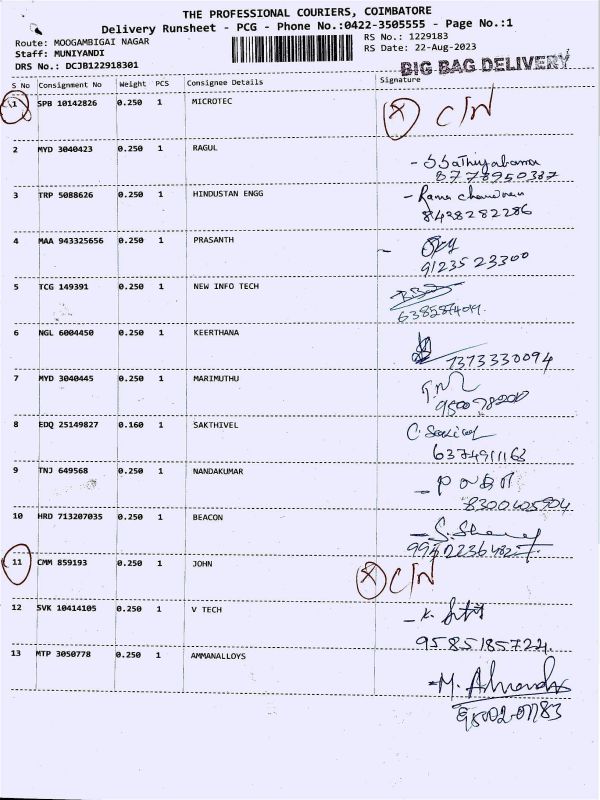 THE PROFESSIONAL COURIERS, COIMBATORE
Delivery Runsheet - PCG - Phone No.:0422-3505555 - Page No.:1
Route: MOOGAMBIGAI NAGAR
RS No.: 1229183
Staff: MUNIYANDI
RS Date: 22-Aug-2023
DRS No.: DCJB122918301
BIG BAG DELIVERY
S No Consignment No Weight PCS Consignee Details Signature
1 SPB 10142826 0.250 1 MICROTEC X C/N
2 MYD 3040423 0.250 1 RAGUL
8778950387
3 TRP 5088626 0.250 1 HINDUSTAN ENGG
8438282286
4 MAA 943325656 0.250 1 PRASANTH
9123523300
5 TCG 149391 0.250 1 NEW INFO TECH
6 NGL 6004450 0.250 1 KEERTHANA
7373330094
7 MYD 3040445 0.250 1 MARIMUTHU
8 EDQ 25149827 0.160 1 SAKTHIVEL
6374911168
9 TNJ 649568 0.250 1 NANDAKUMAR
10 HRD 713207035 0.250 1 BEACON
11 CMM 859193 0.250 1 JOHN X C/N
12 SVK 10414105 0.250 1 V TECH
13 MTP 3050778 0.250 1 AMMANALLOYS